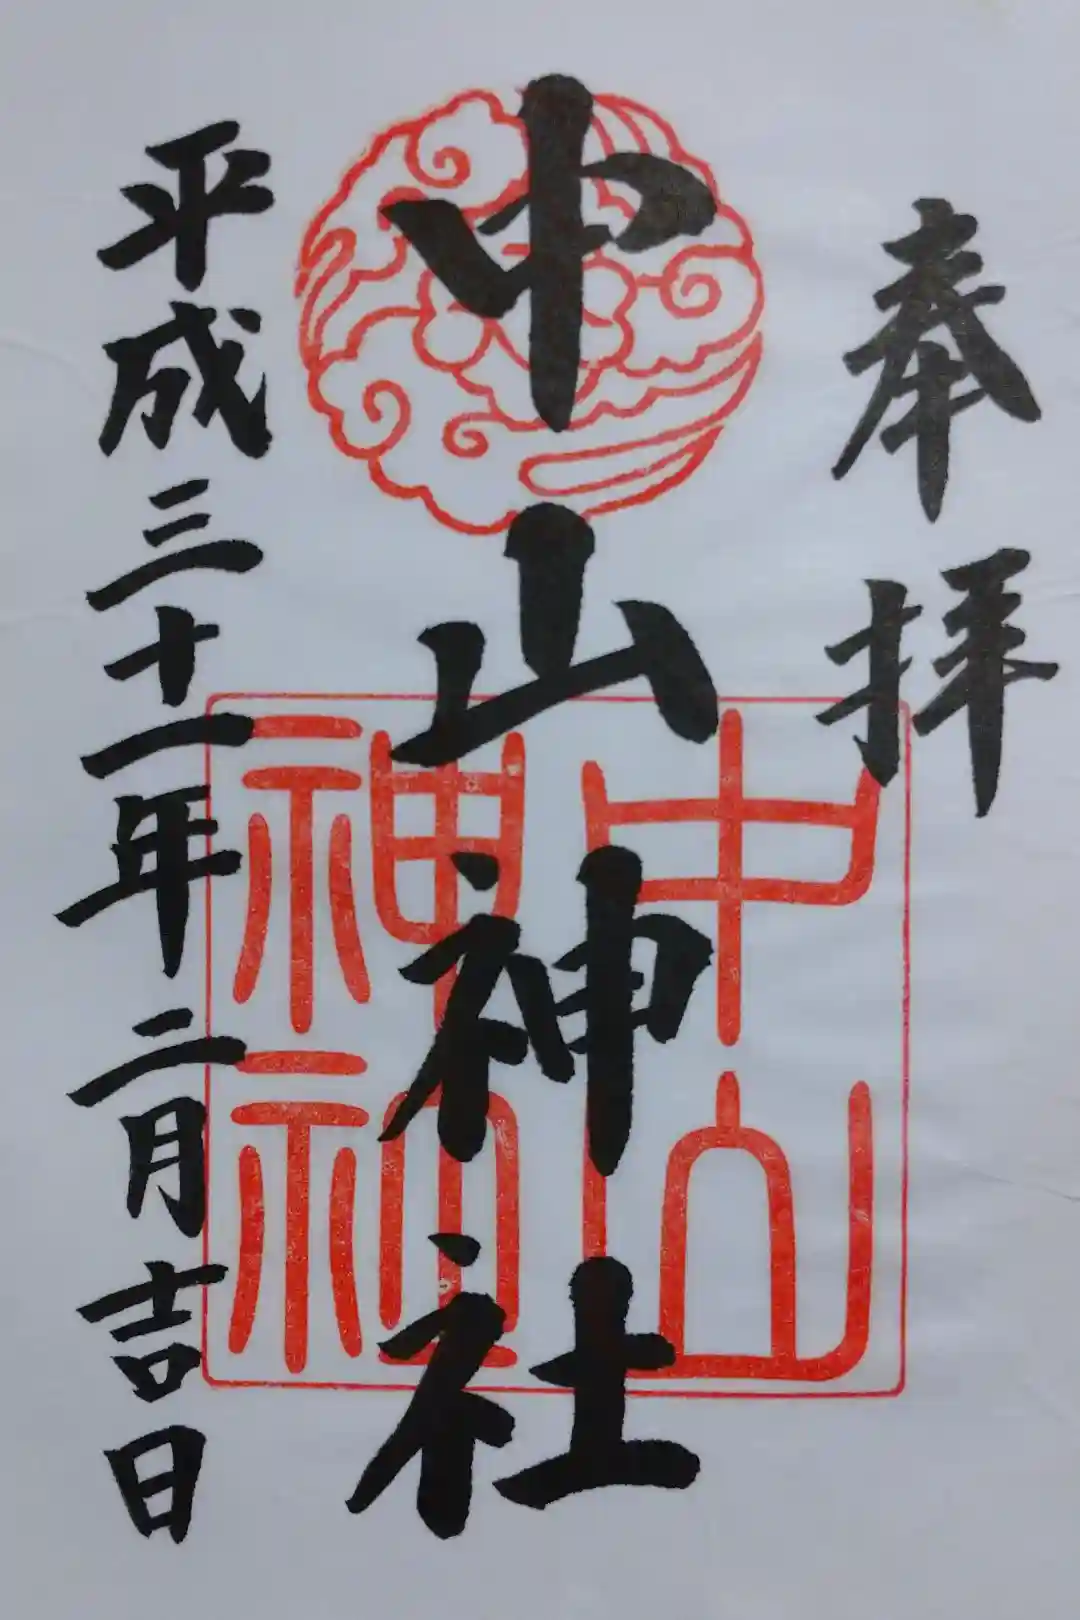 奉拝
中山神社
中山神社
平成三十一年二月吉日